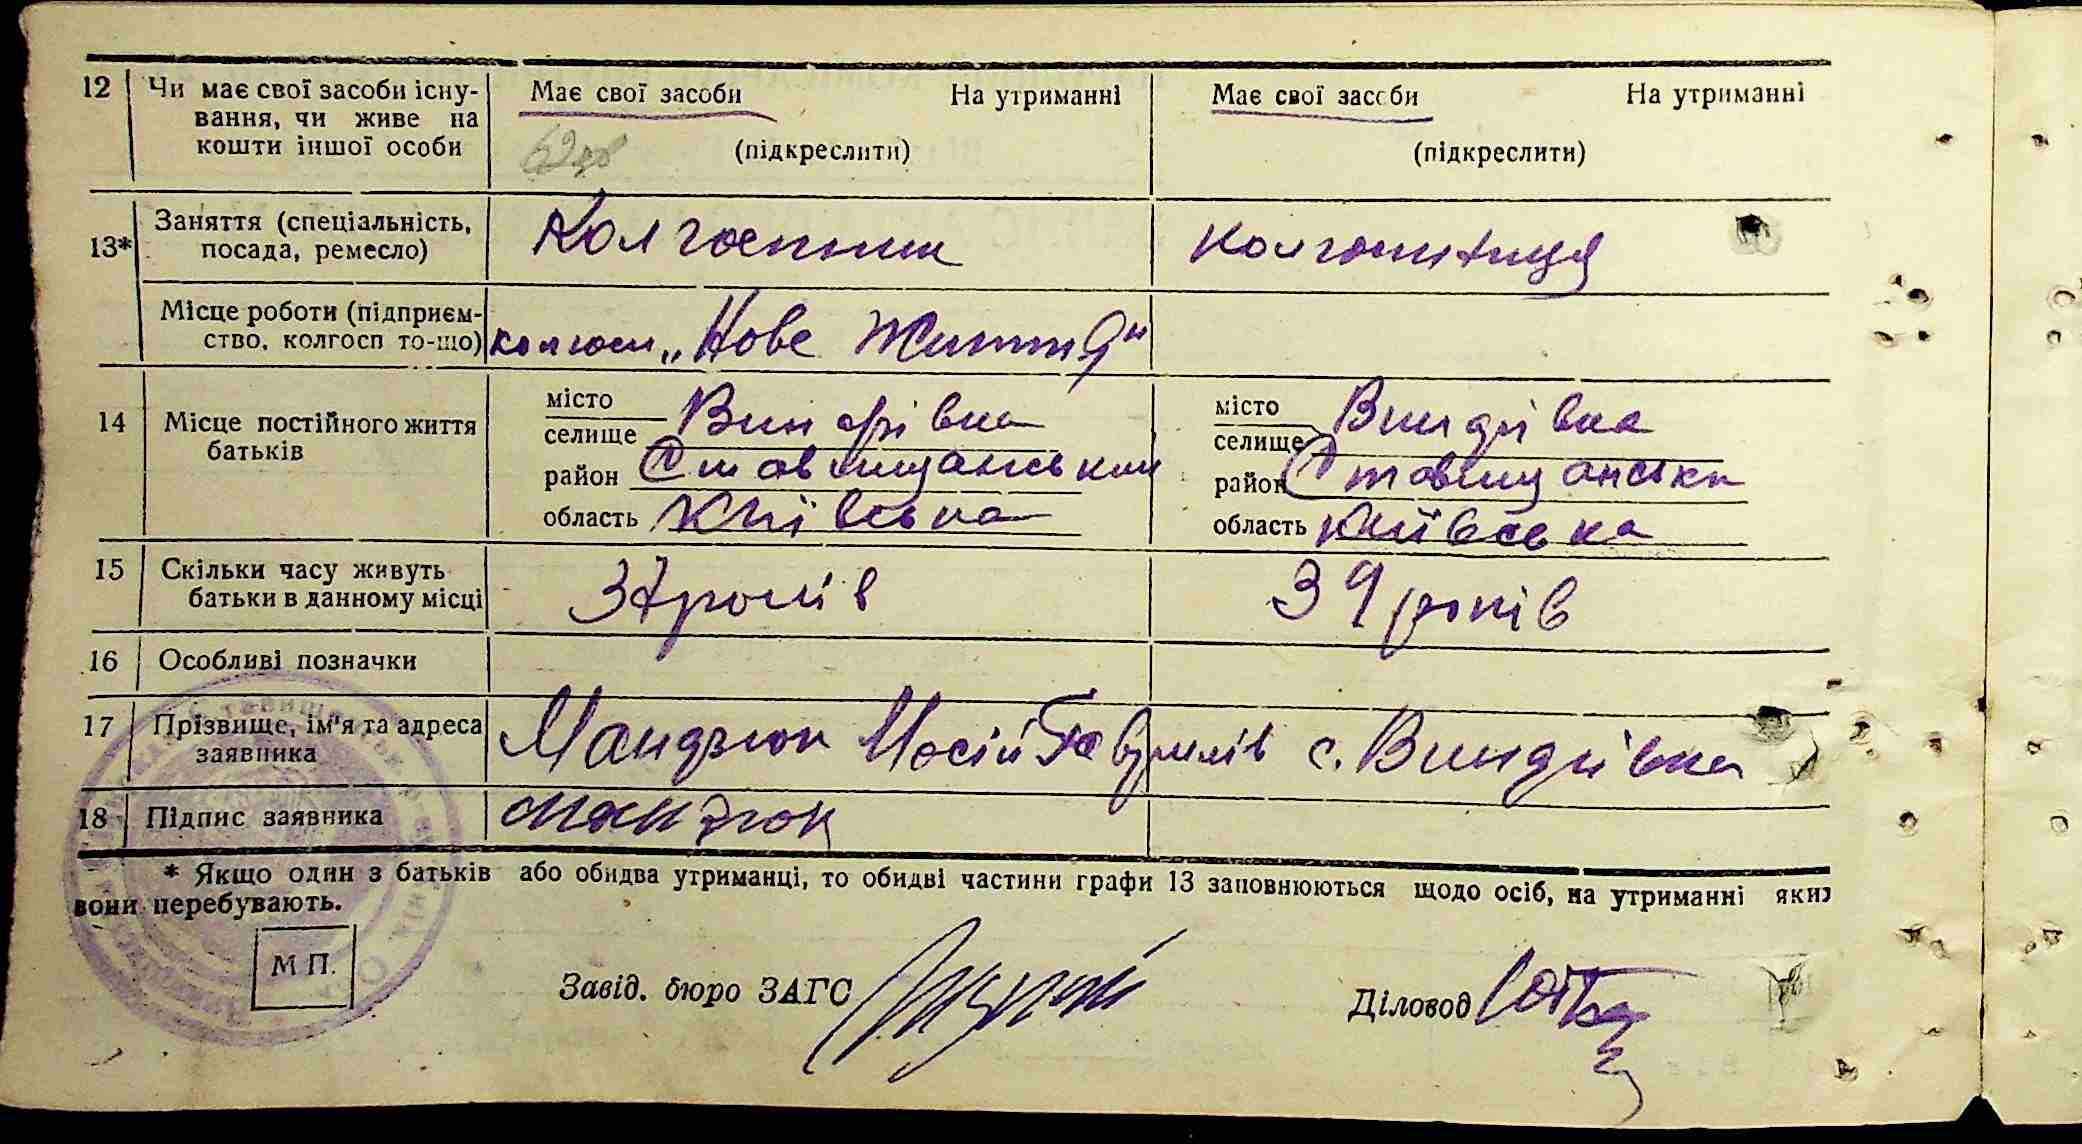 12 Чи має свої засоби існу- Має свої засоби На утриманні Має свої засоби На утриманні
вання, чи живе на
кошти іншої особи (підкреслити) (підкреслити)
13* Заняття (спеціальність, Колгоспник колгоспниця
посада, ремесло)
Місце роботи (підприєм- колгосп „Нове Життя"
ство, колгосп то-що)
14 Місце постійного життя батьків
місто місто
селище Виндрівка селище Виндрівка
район Ставищанський район Ставищанськи
область Київська область Київська
15 Скільки часу живуть 37 років 39 років
батьки в данному місці
16 Особливі позначки
17 Прізвище, ім'я та адреса Мандзюк Мосій Гаврилів с. Виндрівка
заявника
18 Підпис заявника Мандзюк
* Якщо один з батьків або обидва утриманці, то обидві частини графи 13 заповнюються щодо осіб, на утриманні яких
вони перебувають.
М П.
Завід. бюро ЗАГС Діловод